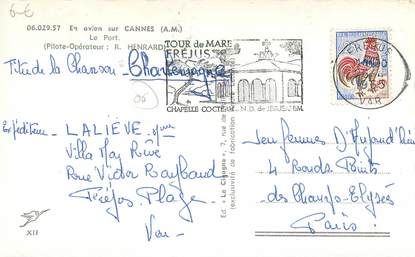 6-€
06.029.57 En avion sur CANNES (A.M.)
Le Port.
(Pilote-Opérateur : R. HENRARD)
TOUR de MARE
FRÉJUS
CHAPELLE COCTEAU N.D. de JERUSALEM
FREJUS
1965
VAR
Titre de la Chanson - Charlemagne
Expéditeur - LALIÈVE Yvon
Villa May Rêve
Rue Victor Raybaud
Fréjus Plage
Var
Ed. "La Cigogne", 7, rue
(exclusivité de fabrication
Jeu femmes d'Aujourd'hui
4 Ronds Points
des Champs-Elysées
Paris
XII